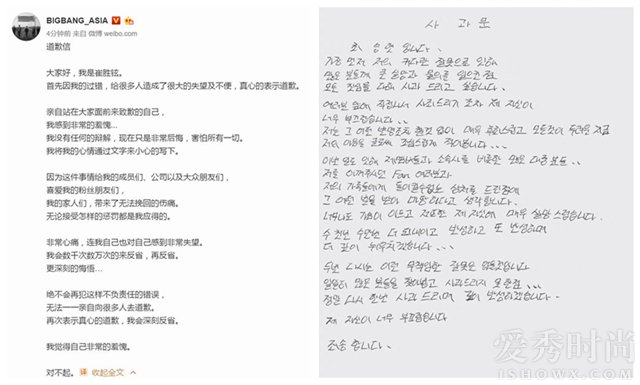 BIGBANG_ASIA
4分钟前 来自 微博 weibo.com
道歉信
大家好，我是崔胜铉。
首先因我的过错，给很多人造成了很大的失望及不便，真心的表示道歉。
亲自站在大家面前来致歉的自己，
我感到非常的羞愧...
我没有任何的辩解，现在只是非常后悔，害怕所有一切。
我将我的心情通过文字来小心的写下。
因为这件事情给我的成员们、公司以及大众朋友们，
喜爱我的粉丝朋友们，
我的家人们，带来了无法挽回的伤痛。
无论接受怎样的惩罚都是我应得的。
非常心痛，连我自己也对自己感到非常失望。
我会数千次数万次的来反省，再反省。
更深刻的悔悟...
绝不会再犯这样不负责任的错误，
无法一一亲自向很多人去道歉。
再次表示真心的道歉，我会深刻反省。
我觉得自己非常的羞愧。
对不起。 收起全文
사과문
최승현 입니다.
가장 먼저 저의 커다란 잘못으로 인해
많은 분들께 큰 실망과 물의를 일으킨 점
모든 진심을 다해 사과 드리고 싶습니다.
여러분 앞에 직접 나서 사과드리기 조차 제 자신이
너무 부끄럽습니다..
저는 그 어떤 변명조차 할 것 없이 매우 후회스럽고 모든 것이 두려운 지금
저의 마음을 글로써 조심스럽게 적어봅니다...
이번 일로 인해 제 멤버들과 소속사를 비롯한 많은 대중분들..
저를 아껴주시던 Fan 여러분과
저의 가족들에게 돌이킬 수 없는 상처를 드린 점에
그 어떤 벌을 받아 마땅하다고 생각합니다.
너무나도 가슴이 아프고 저조차 제 자신에 매우 실망스럽습니다.
수천번 수만번 더 되내이고 반성하고 또 반성하며
더 깊이 뉘우치겠습니다...
두번 다시는 이런 무책임한 잘못은 없을 것입니다
일일이 많은 분들을 찾아뵙고 사과드리지 못한 점..
정말 다시 한번 사과 드리며 깊이 반성하겠습니다.
제 자신이 너무 부끄럽습니다
죄송합니다.
爱秀时尚
ISHOWX.COM